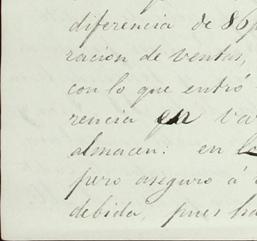 diferencia de 86
racion de ventas,
con lo que entró
rencia en va
almacen: en lo
pero aseguro á
debida, pues ha